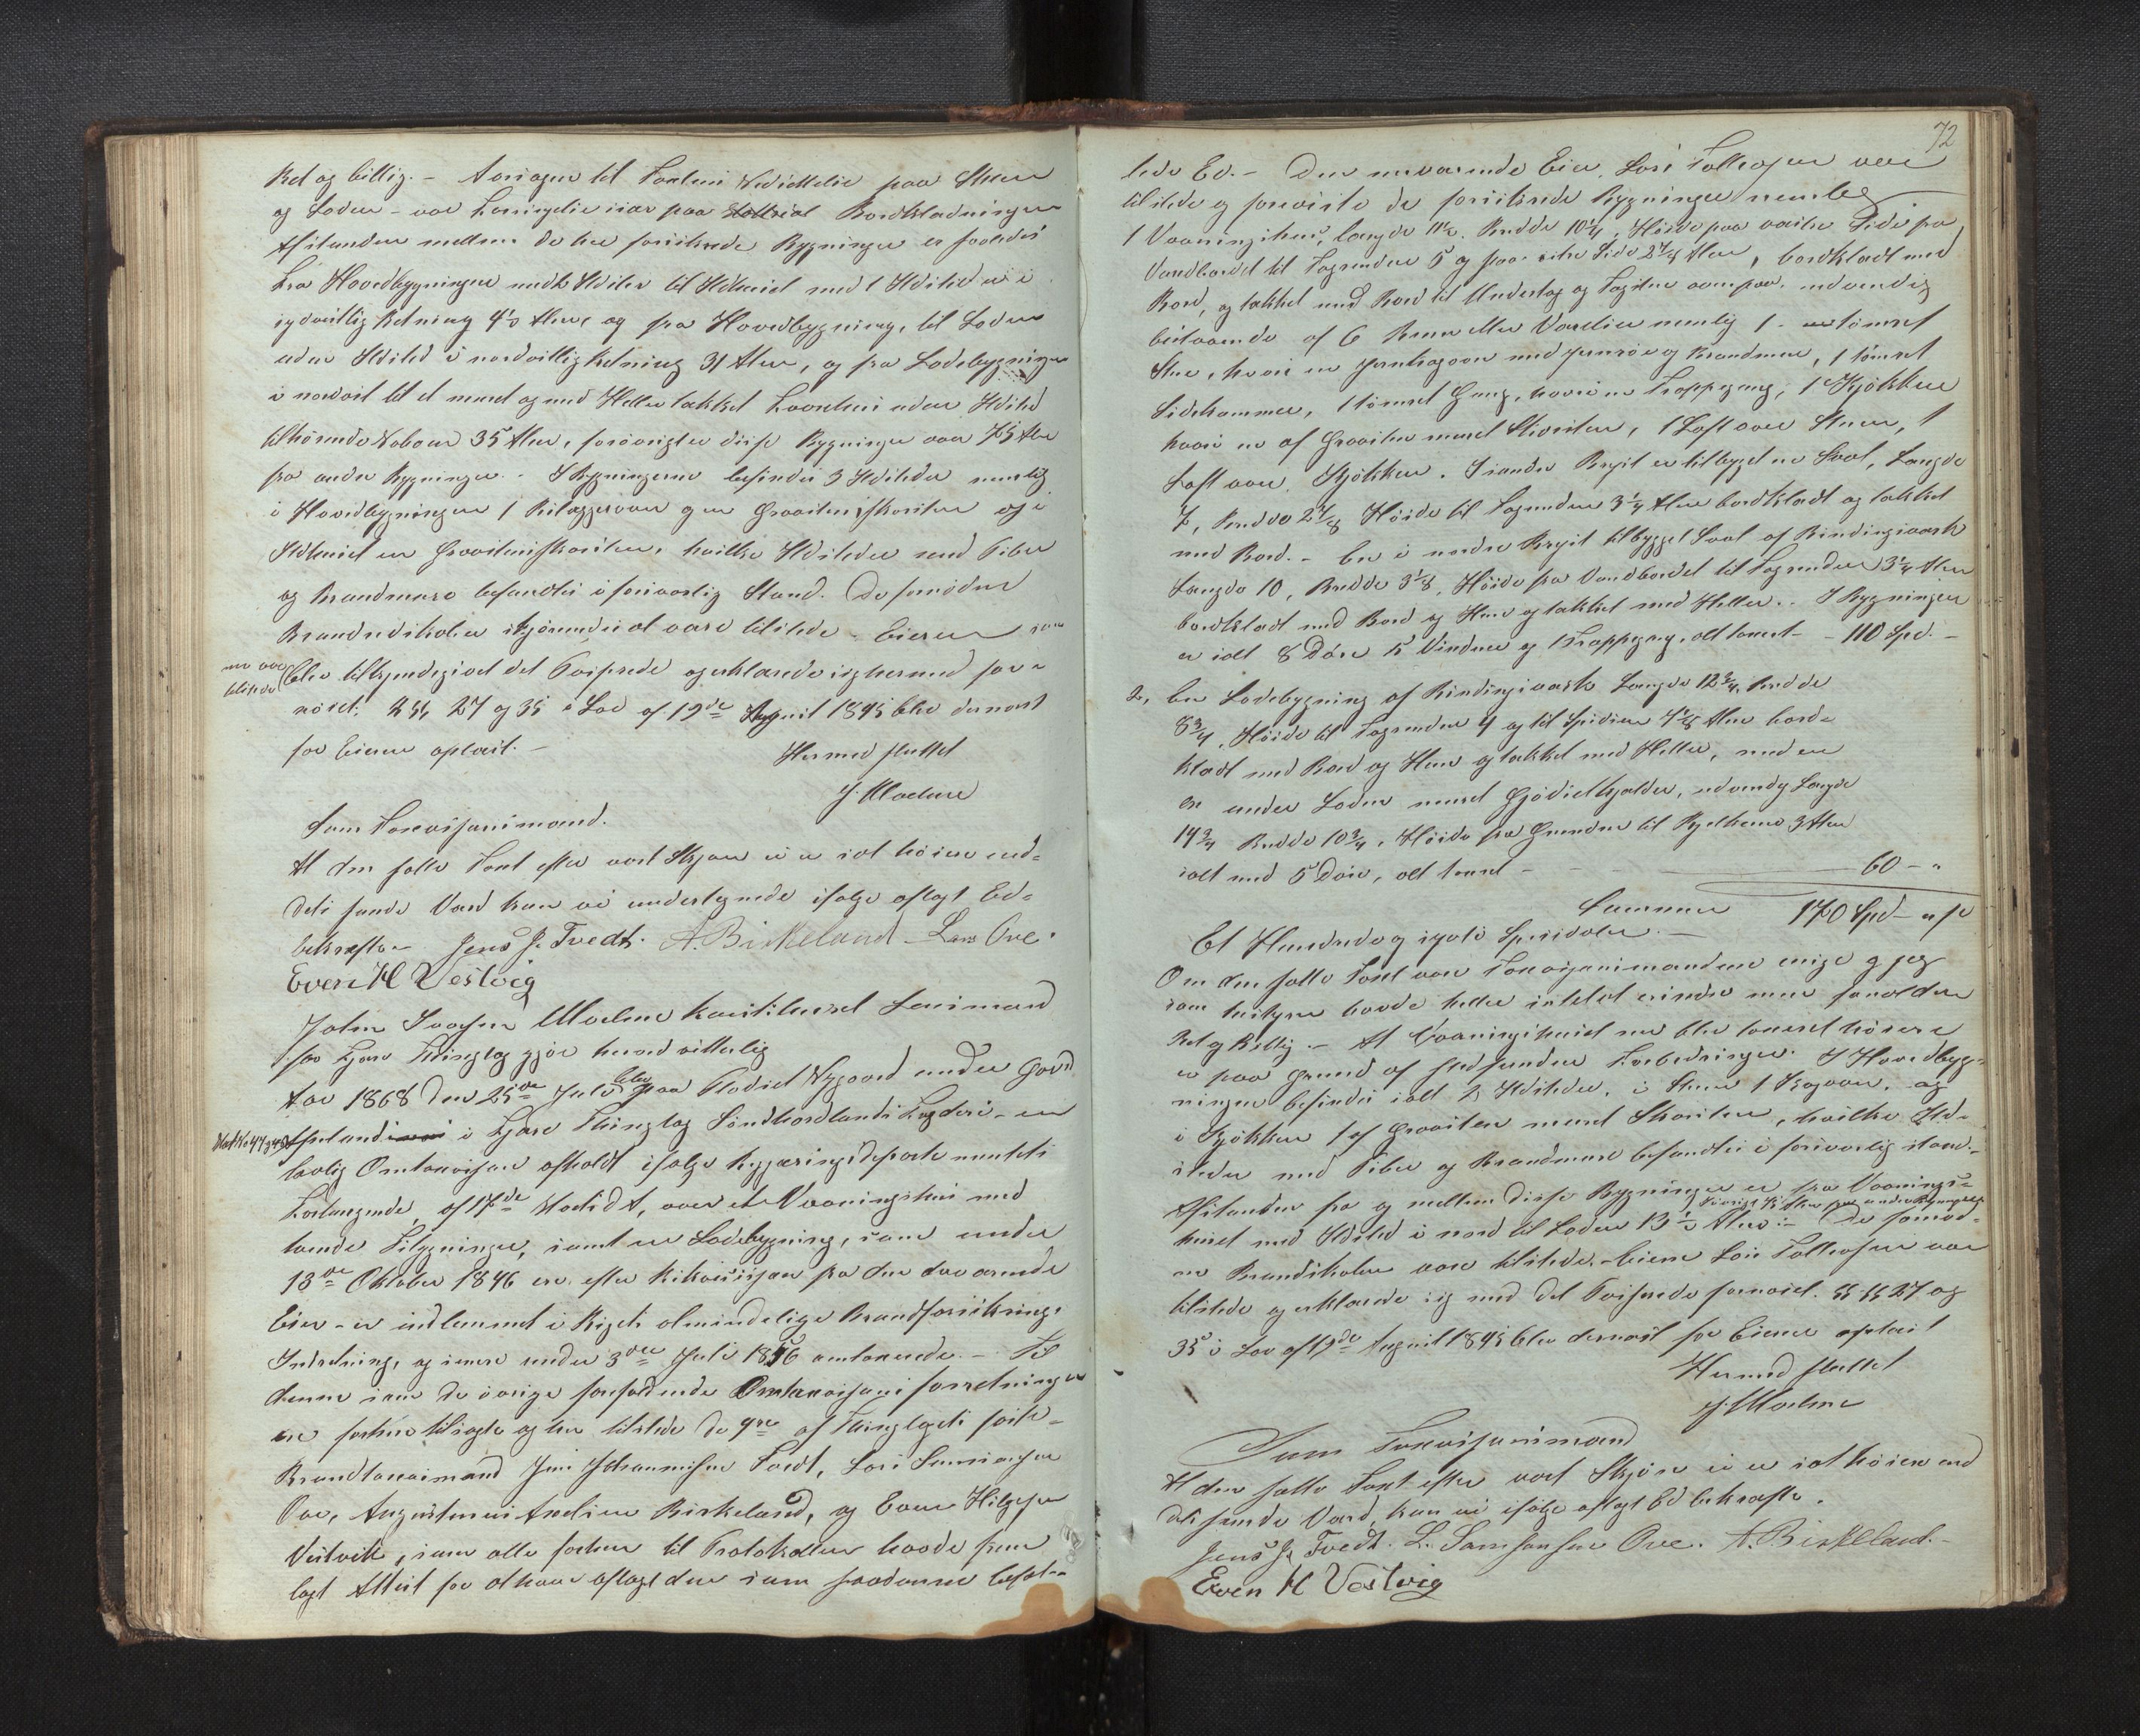 Ret og billig. – Aarsagen til Taxtens Nedsættelse paa Stuen
og Loden – var Forringelse især paa Bordklædningen
Afstanden mellem de her forsikrede Bygninger er saaledes
Fra Hovedbygningen med 2 Ildsteder til Ildhuset med 1 Ildsted er i
sydvestlig Retning 4½ Alen, og fra Hovedbygning, til Loden
uden Ildsted i nordvestlig Retning 31 Alen, og fra Lodebygningen
i nordost til et muret og med Heller takket uden Ildsted
tilhørende Naboen 35 Alen, forøvrigt er disse Bygninger over 75 Alen
fra andre Bygninger. – I Bygningerne befindes 3 Ildsteder nemlig
i Hovedbygningen 1 Bilæggerovn og en Graasteinsskorsten og i
Ildhuset en Graasteinsskorsten, hvilke Ildsteder med Piber
og Brandmure befandtes i forsvarlig Stand. De fornødne
Brandredskaber skjønnedes at være tilstede. Eieren som
nu var tilstede
blev tilkjendegivet det Passerede og erklærede sig hermed for-
nøiet. §§ 27 og 35 i Lov af 19de August 1845 blev dernæst
for Eieren oplæst. –
Hermed sluttet
J. Mælene
Som Taxasjonsmænd.
At den satte Taxt efter vort Skjøn ei er sat høiere end
dets sande Værd kan vi undertegnede ifølge aflagt Ed
bekræfte – Jens J. Tvedt. A. Birkeland Lars Ove.
Even H Vestvig
John Mælene konstitueret Lensmand
for Fjære Thinglag gjør herved vitterlig
Aar 1868 den 25de Juli blev paa Pladset Nygaard under Gaard
Mat No 47 og 48
i Fjære Thinglag Søndhordlands Fogderi – en
lovlig Omtaxasjon afholdt ifølge Departementets
Forlangende af 17de, over et Vaaningshus med
Tilbygninger, samt en Lodebygning, som under
13de Oktober 1846 ere efter Rekvisisjon fra den daværende
Eier – er indlemmet i Rigets almindelige Brandforsikrings
Indretning, og senere under 3die Juli 1856 omtaxerede. – Til
denne som de øvrige forefaldende Omtaxasjons forretninger
ere forhen tilsagte og her tilstede de 4re af Thinglagets faste
Brandtaxasmænd Jens Johannessen Tvedt, Lars Samsonsen
Ove, Augustinus Andersen Birkeland, og Even Helgesen
Vestvik, som alle forhen til Protokollen havde frem
lagt Attest for at have aflagt den som saadanne befal-
72
lede Ed. – Den nuværende Eier, Lars Tollevsen var
tilstede og foreviste de forsikrede Bygninger nemlig
1 Vaaningshus, længde 11½ Bredde 10¼, Høide paa østre Side fra
Vandbordet til Tagrenden 5 og paa vestre Side 2⅞ Alen, bordklædt med
Bord, og takket med Bord til Undertag og Tagsten ovenpaa, indvendig
bestaaende af 6 Rum eller Værelser nemlig 1 tømret
Stue, hvori en Jernkagovn med Jernrør og Brandmur, 1 tømret
Sidekammer, 1 tømret Gang, hvori en Trappegang, 1 Kjøkken
hvori en af Graasten muret Skorsten, 1 Loft over Stuen, 1
Loft over Kjøkken. I søndre Bryst er tilbygget en Sval, Længde
7, Bredde 2⅞ Høide til Tagrenden 3¼ Alen bordklædt og takket
med Bord. – En i nordre Bryst tilbygget Sval af Bindingsværk
Længde 10, Bredde 3⅛, Høide fra Vandbordet til Tagrenden 3¼ Alen
bordklædt med Bord og Hun og takket med Heller. – I Bygningen
er ialt 8 Døre 15 Vinduer og 1 Trappegang, alt taxert – – 110 Spd. –
2, En Lodebygning af Bindingsværk Længde 12¾, Bredde
8¾, Høide til Tagrenden 4 og til Spidsen 7⅛ Alen bord-
klædt med Bord og Hun og takket med Heller, med en
en under Loden muret Gjødselkjelder, udvendig Længde
14¾ Bredde 10¾, Høide fra Grunden til Bjelkerne 3 Alen
ialt med 5 Døre, alt taxert – – – 60 – "
Summa 170 Spd – " s
Et Hundrede og sytti Spesidaler. –
Om den satte Taxt var Taxasjonsmændene enige og jeg
som bestyrer havde heller intet at erindre men fandt den
Ret og Billig. – At Vaaningshuset nu blev taxeret høiere
er paa Grund af stedfundne Forbedringer. I Hovedbyg-
ningen befindes ialt 2 Ildsteder, i Stuen 1 Kagovn, og
i Kjøkken 1 af Graasten muret Skorsten, hvilke Ild-
steder med Piber og Brandmure befandtes i forsvarlig stand. –
Afstanden fra og mellem disse Bygninger er fra Vaanings-
huset med Ildsted i nord til Loden 13½ Alen. – De fornød-
forøvrigt 75 Alen fra andre Bygninger
ne Brandskaber vare tilstede. – Eieren Lars Tollevsen var
tilstede og erklærede sig med det Passerede fornøiet. §§ 27 og
35 i Lov af 19de August 1845 blev dernæst for Eieren oplæst
Hermed sluttet
J. Mælene
Som Taxasjonsmænd
At den satte Taxt efter vort Skjøn ei er sat høiere end
dets sande Værd, kan vi ifølge aflagt Ed bekræfte.
Jens J. Tvedt. L. Samsonsen Ove. A. Birkeland. –
Even H Vestvig